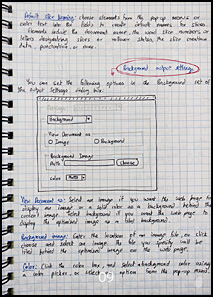 Default Slice Naming: choose elements from the pop-up menus or
enter text into the fields to create default names for slices.
Elements include the document name, the word slice, numbers or
letters designating slices or rollover states, the slice creation
date, punctuation, or none.
Background output settings
You can set the following options in the Background set of
the Output Settings dialog box.
Background
View Document as
Image
Background
Background Image
Path:
Choose
Color:
Matte
View Document as: Select an image if you want the web page to
display an image or a solid color as a background behind the
current image. Select background if you want the web page to
display the optimized image as a tiled background.
Background image: Enter the location of an image file, or click
choose and select an image. The file you specify will be
tiled behind the optimized image on the web page.
Color: Click the color box and select a background color using
a color picker, or select an option from the pop-up menu.